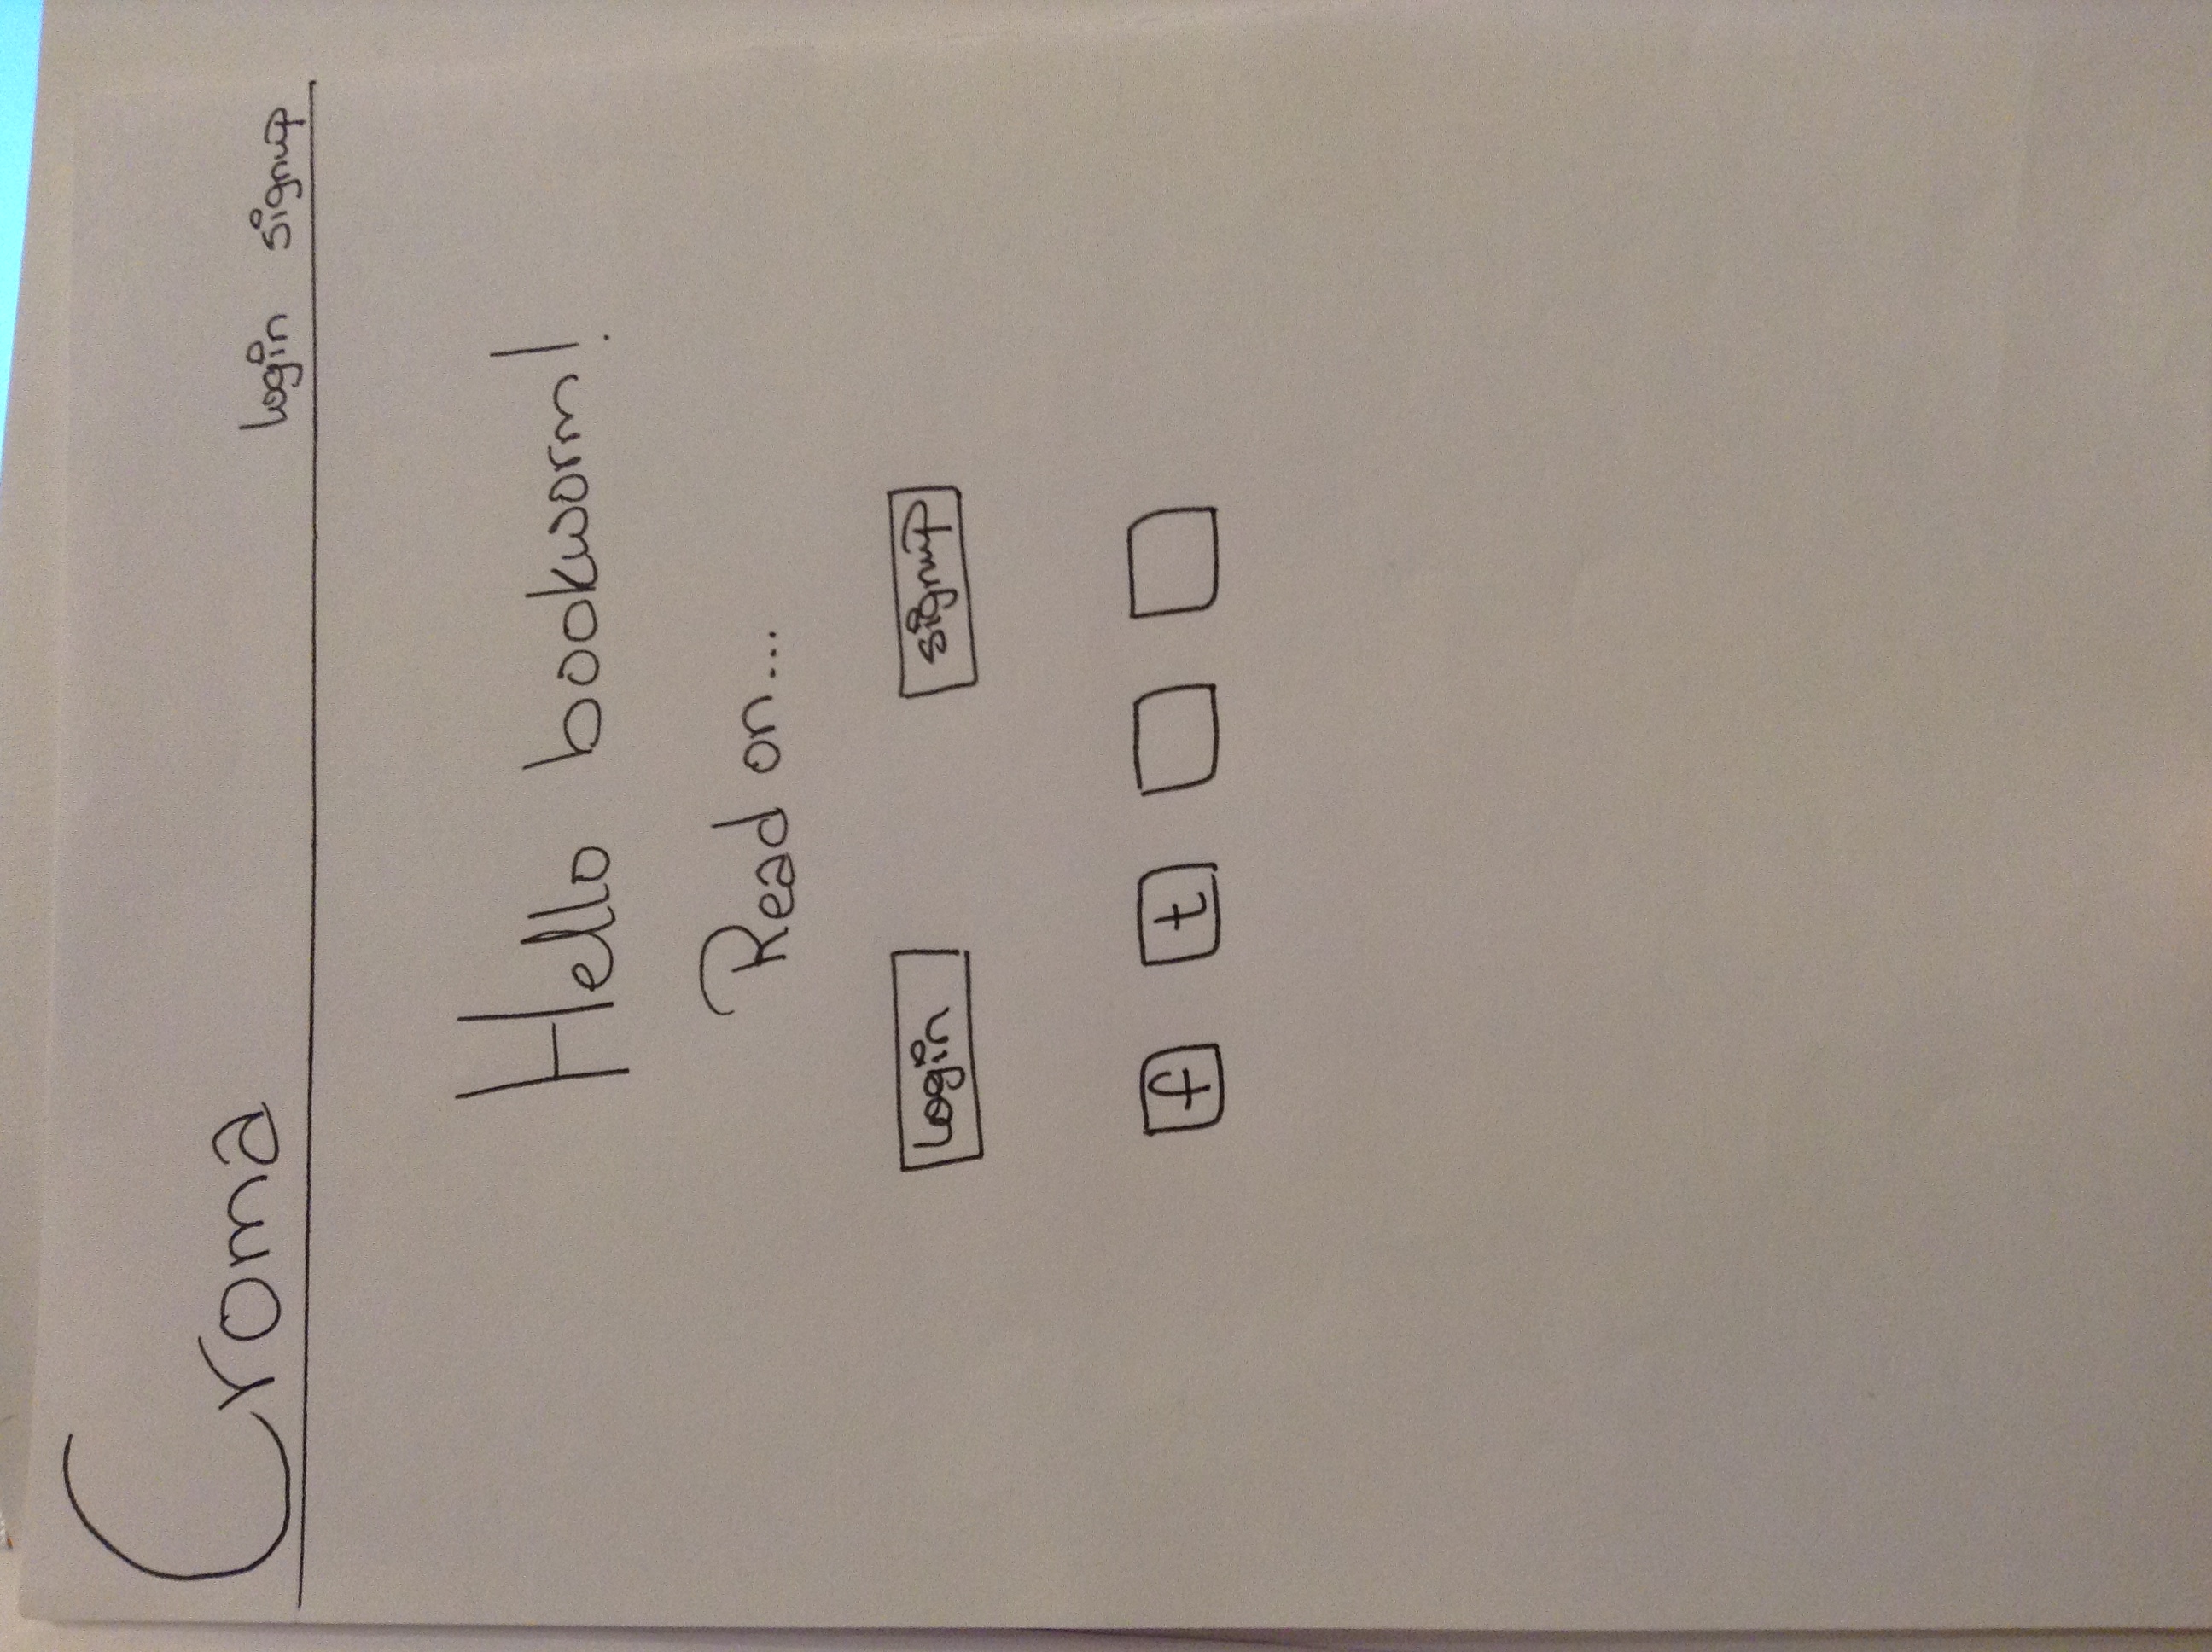 Croma
login signup
Hello bookworm!
Read on...
login signup
f t